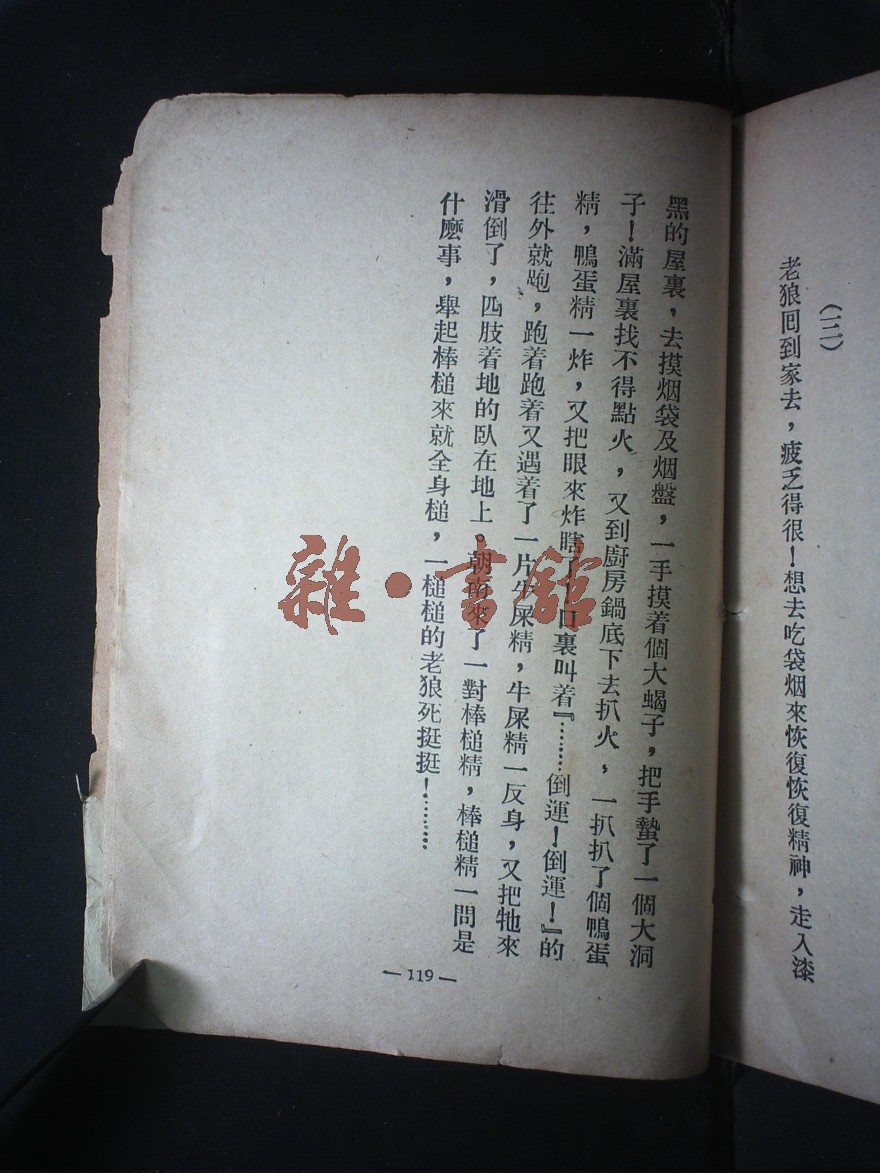 （三）
老狼囘到家去，疲乏得很！想去吃袋烟來恢復恢復精神，走入漆
黑的屋裏，去摸烟袋及烟盤，一手摸着個大蝎子，把手蟄了一個大洞
子！滿屋裏找不得點火，又到廚房鍋底下去扒火，一扒扒了個鴨蛋
精，鴨蛋精一炸，又把眼來炸瞎了！口裏叫着『………倒運！倒運！』的
往外就跑，跑着跑着又遇着了一片牛屎精，牛屎精一反身，又把牠來
滑倒了，四肢着地的臥在地上。朝南來了一對棒槌精，棒槌精一問是
什麽事，舉起棒槌來就全身槌，一槌槌的老狼死挺挺！………
—119—
雜·書舘